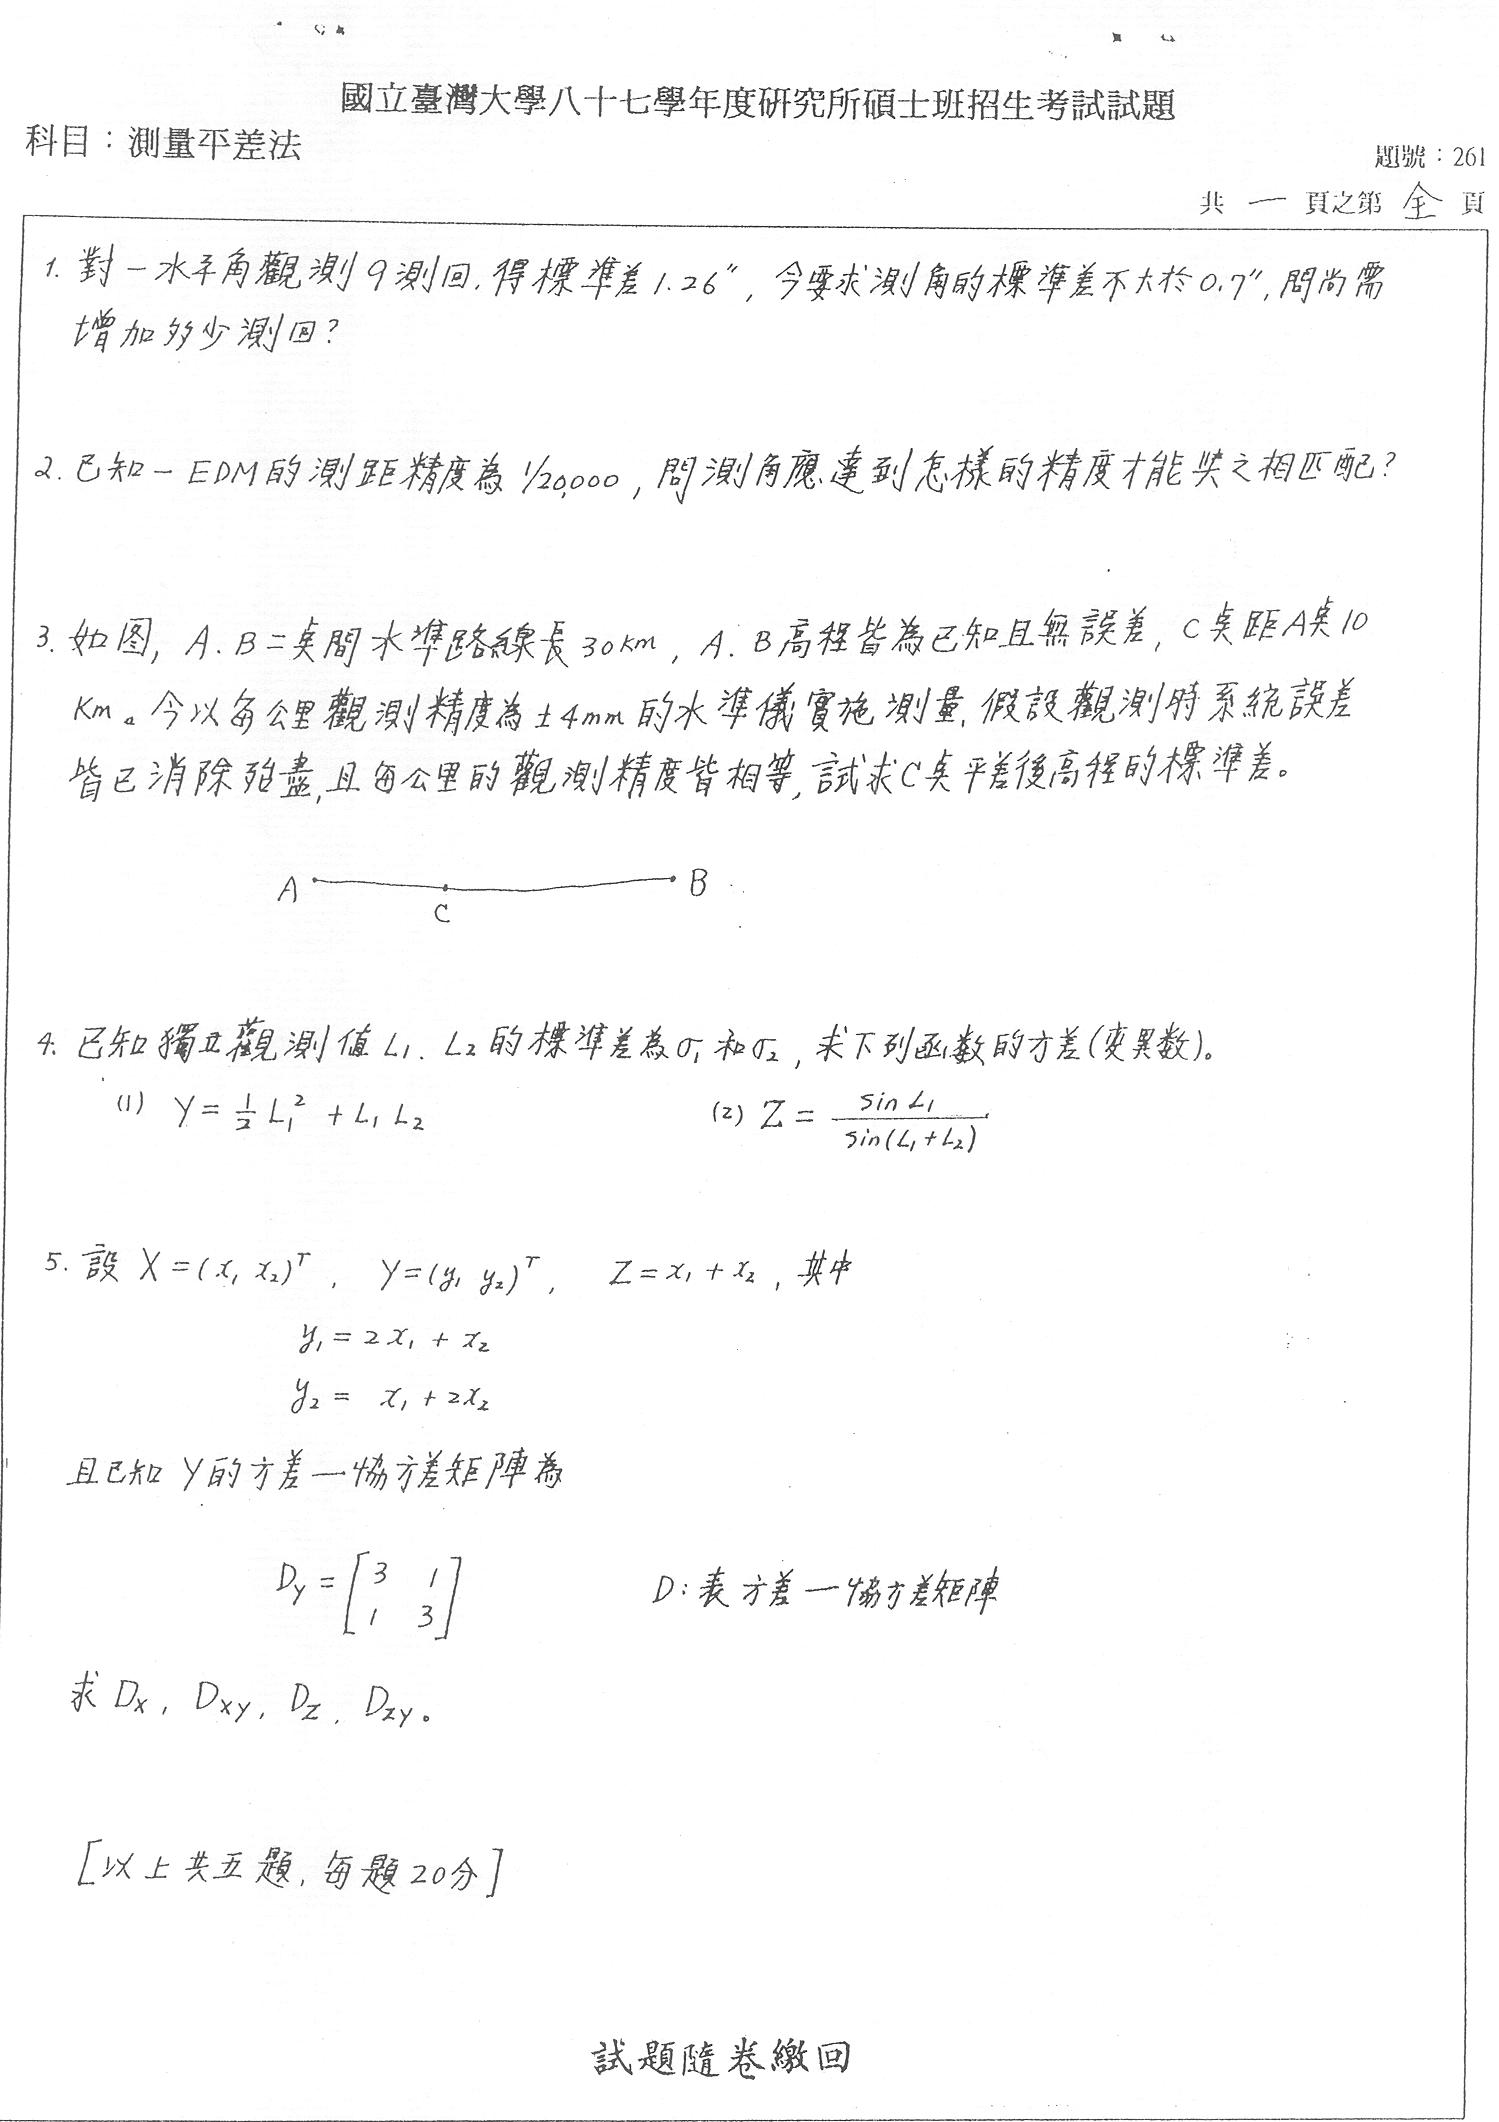 國立臺灣大學八十七學年度研究所碩士班招生考試試題
科目：測量平差法
題號：261
共 一 頁之第 全 頁
1. 對一水平角觀測9測回，得標準差1.26"，今要求測角的標準差不大於0.7"，問尚需
增加多少測回？
2. 已知一EDM的測距精度為1/20,000，問測角應達到怎樣的精度才能與之相匹配？
3. 如图，A．B二點間水準路線長30Km，A．B高程皆為已知且無誤差，C點距A點10
Km。今以每公里觀測精度為±4mm的水準儀實施測量，假設觀測時系統誤差
皆已消除殆盡，且每公里的觀測精度皆相等，試求C點平差後高程的標準差。
A C B
4. 已知獨立觀測值L₁．L₂的標準差為σ₁和σ₂，求下列函数的方差（变異数）。
(1) Y = 1/2 L₁² + L₁ L₂ (2) Z = sin L₁ / sin(L₁+L₂)
5. 設 X=(x₁ x₂)ᵀ， Y=(y₁ y₂)ᵀ， Z=x₁+x₂，其中
y₁ = 2x₁ + x₂
y₂ = x₁ + 2x₂
且已知 Y的方差—協方差矩陣為
D_Y = [3 1
1 3] D：表方差—協方差矩陣
求 D_X，D_XY，D_Z，D_ZY。
[以上共五題，每題20分]
試題隨卷繳回